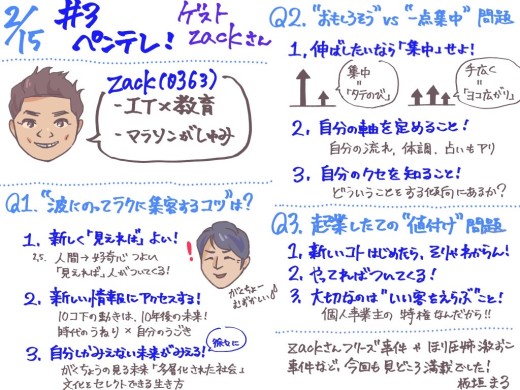 2/15
#3
ペンテレ!
ゲスト
zackさん
zack(0363)
-IT×教育
-マラソンがしゅみ
Q1."波にのってラクに集客するコツ"は?
1. 新しく「見えれば」よい!
人間→好奇心つよい
「見えれば」人がついてくる!
2. 新しい情報にアクセスする!
10コ下の動きは、10年後の未来!
時代のうねり×自分のうごき
3. 自分しかみえない未来がみえる!
がくちょうの見る未来"多層化された社会"
文化をセレクトできる生き方
!
がくちょー
むずかいい
Q2."おもしろそう"vs"一点集中"問題
1. 伸ばしたいなら「集中」せよ!
集中
=
「タテのび」
手広く
=
「ヨコ広がり」
2. 自分の軸を定めること!
自分の流れ、体調、占いもアリ
3. 自分のクセを知ること!
どういうことをする傾向にあるか?
Q3. 起業したての"値付け"問題
1. 新しいコトはじめたら、そりゃわからん!
2. やってればついてくる!
3. 大切なのは"いい客をえらぶ"こと!
個人事業主の特権なんだから!!
zackさんフリーズ事件やほり圧姉激おこ
事件など、今回も見どころ満載でした!
板垣まる